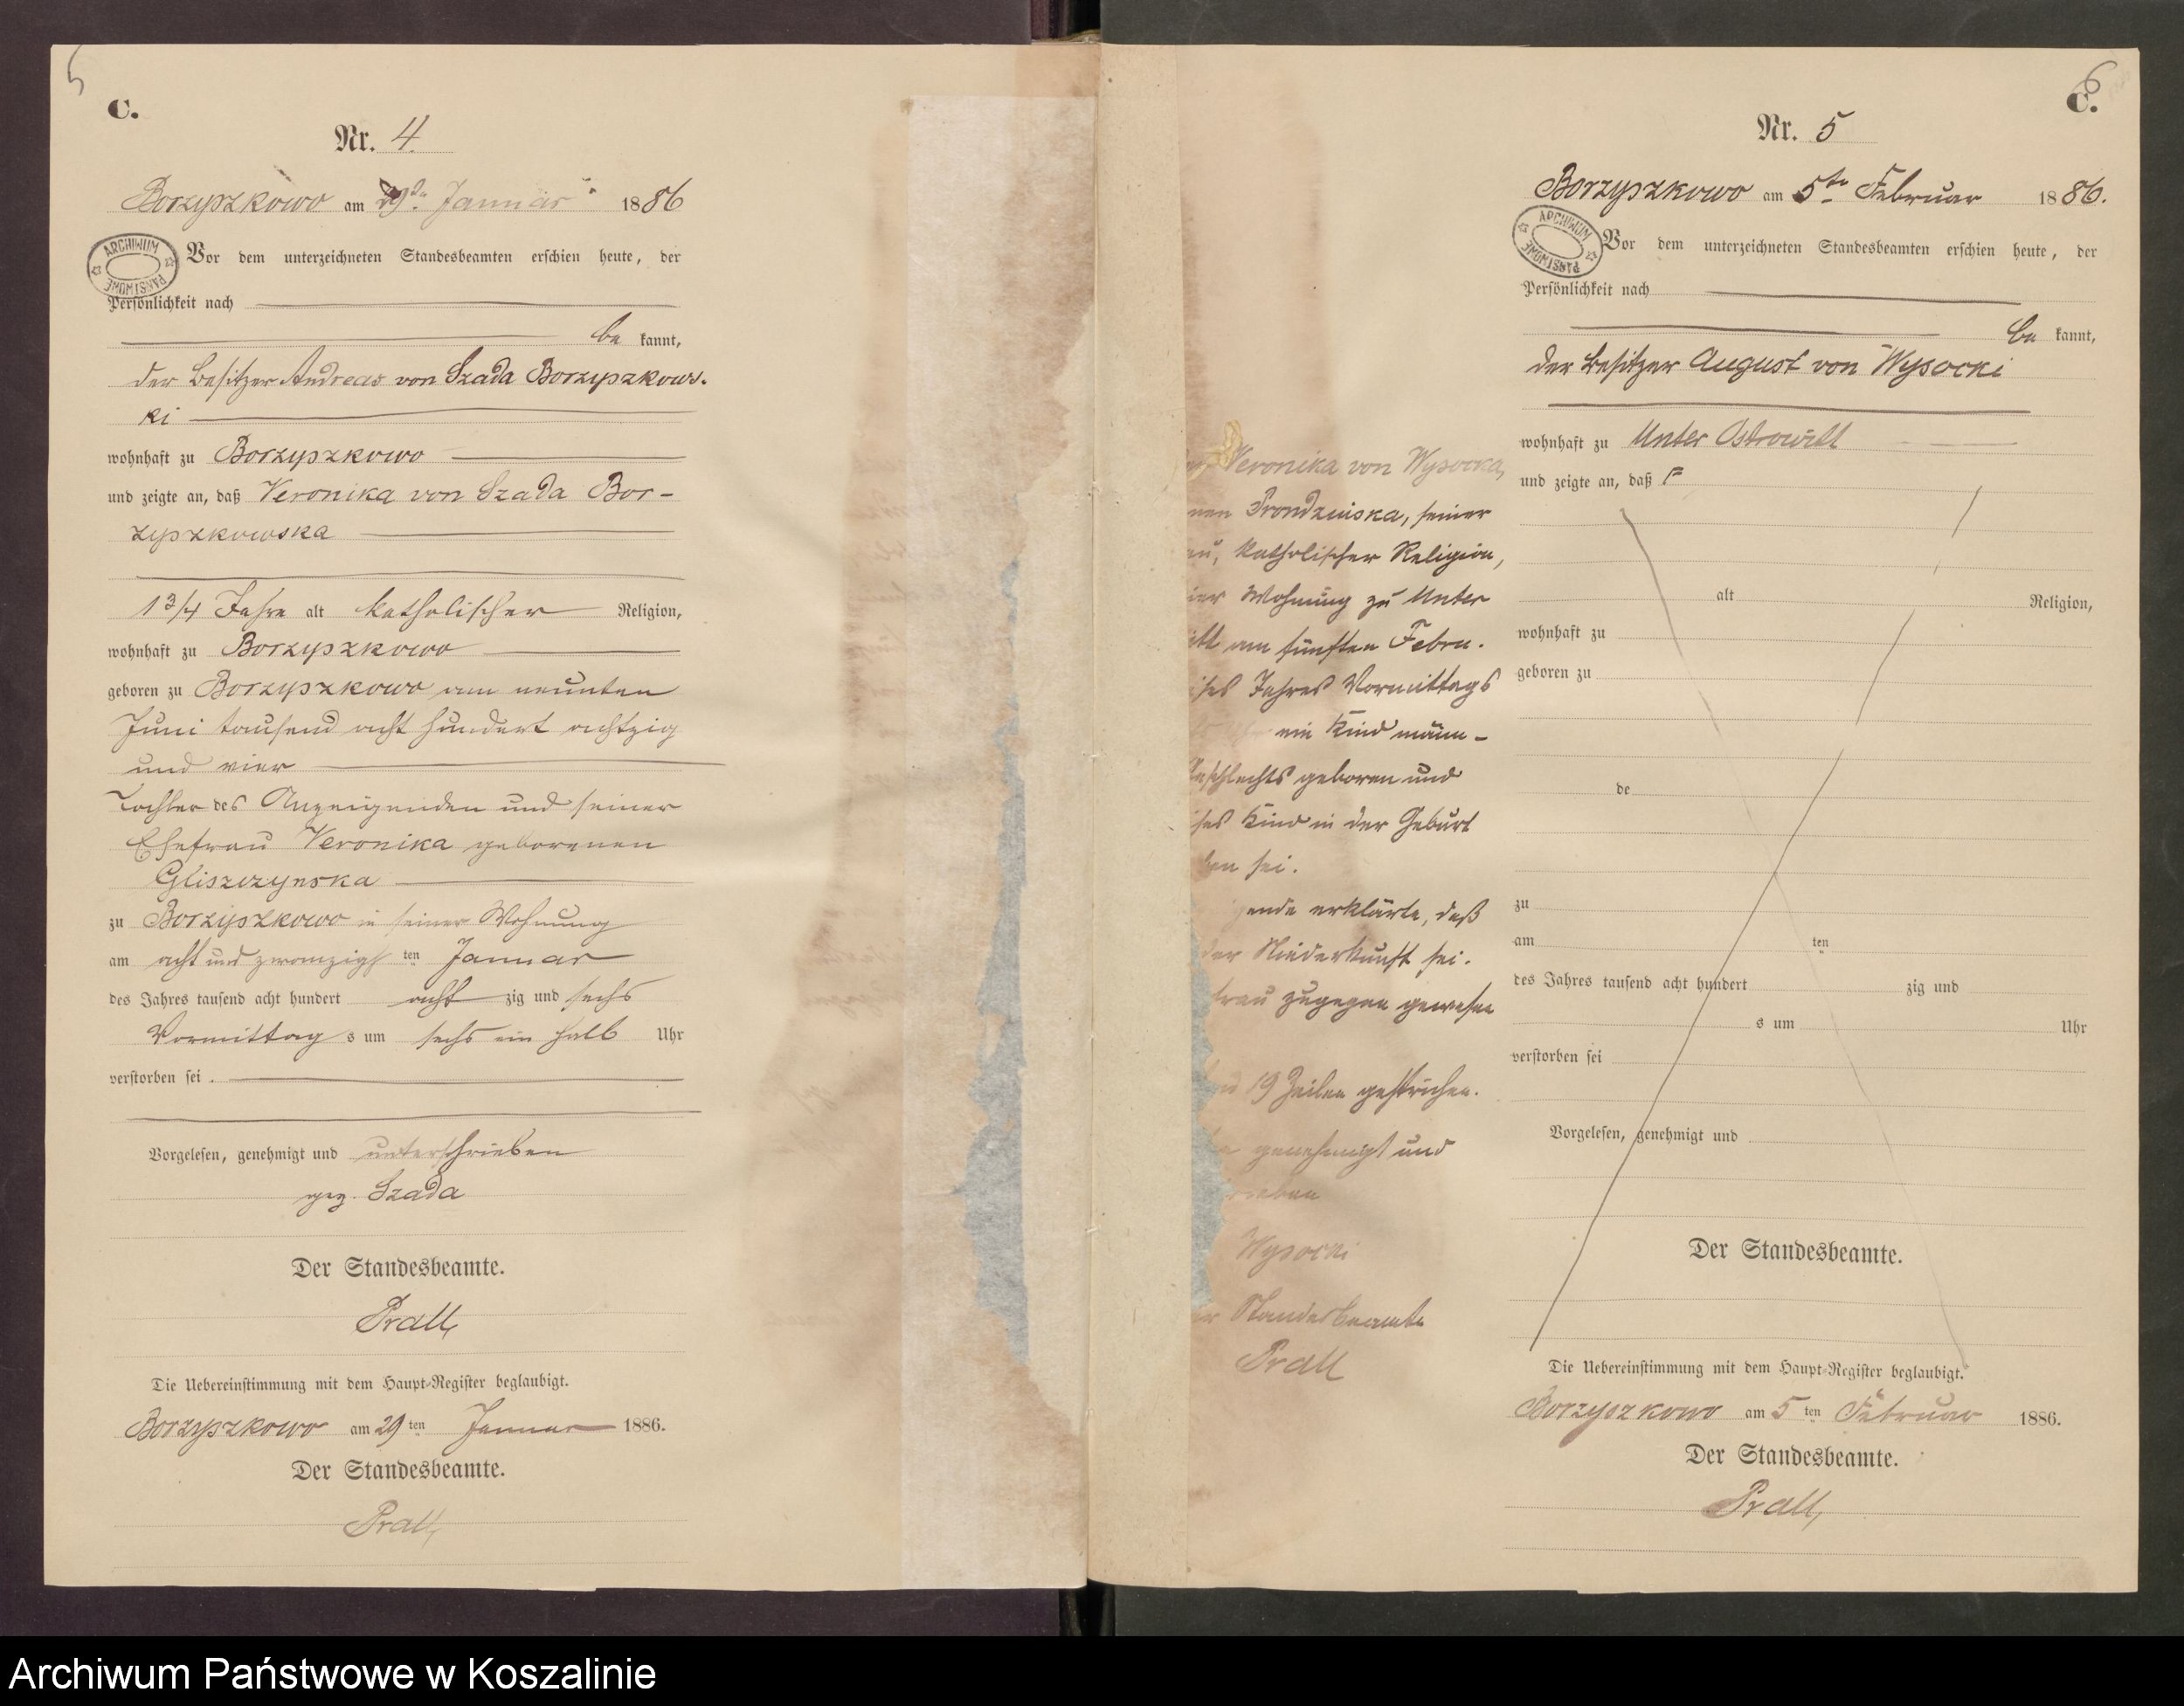 5
C.
Nr. 4.
Borzyszkowo am 29ten Januar 1886
ARCHIWUM PAŃSTWOWE
Vor dem unterzeichneten Standesbeamten erschien heute, der
Persönlichkeit nach
be kannt,
der Besitzer Andreas von Szada Borzyszkows-
ki
wohnhaft zu Borzyszkowo
und zeigte an, daß Veronika von Szada Bor-
zyszkowska
1 3/4 Jahre alt katholischer Religion,
wohnhaft zu Borzyszkowo
geboren zu Borzyszkowo am neunten
Juni tausend acht hundert achtzig
und vier
Tochter des Anzeigenden und seiner
Ehefrau Veronika geborenen
Gliszczynska
zu Borzyszkowo in seiner Wohnung
am acht und zwanzigs ten Januar
des Jahres tausend acht hundert acht zig und sechs
Vormittag s um sechs ein halb Uhr
verstorben sei.
Vorgelesen, genehmigt und unterschrieben
gez. Szada
Der Standesbeamte.
Prall,
Die Uebereinstimmung mit dem Haupt-Register beglaubigt.
Borzyszkowo am 29 ten Januar 1886.
Der Standesbeamte.
Prall,
Veronika von Wysocka,
nen Prondzinska, seiner
au, katholischer Religion,
iner Wohnung zu Unter
itt am fünften Febru-
ises Jahres Vormittags
ein Kind männ-
Geschlechts geboren und
ises Kind in der Geburt
ben sei.
gende erklärte, daß
der Niederkunft sei.
frau zugegen gewesen
19 Zeilen gestrichen.
genehmigt und
rieben
Wysocki
er Standesbeamte
Prall
6
C.
Nr. 5
Borzyszkowo am 5ten Februar 1886.
ARCHIWUM PAŃSTWOWE
Vor dem unterzeichneten Standesbeamten erschien heute, der
Persönlichkeit nach
be kannt,
der Besitzer August von Wysocki
wohnhaft zu Unter Ostrowitt
und zeigte an, daß
alt Religion,
wohnhaft zu
geboren zu
de
zu
am ten
des Jahres tausend acht hundert zig und
s um Uhr
verstorben sei
Vorgelesen, genehmigt und
Der Standesbeamte.
Die Uebereinstimmung mit dem Haupt-Register beglaubigt.
Borzyszkowo am 5 ten Februar 1886.
Der Standesbeamte.
Prall,
Archiwum Państwowe w Koszalinie